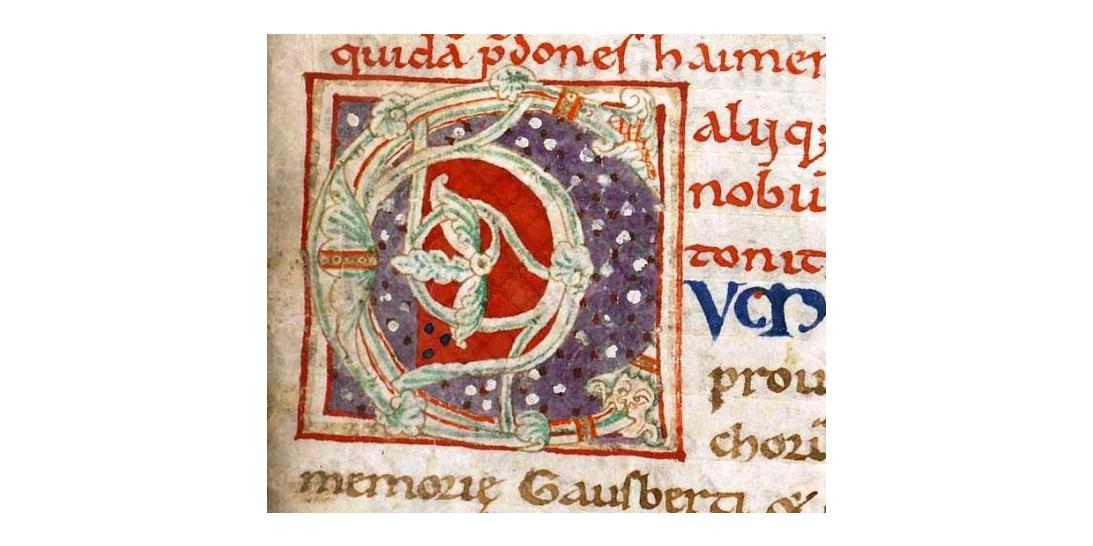 quidā p̄dones haimer
alijq;
nobū
tonit
CVM
prou
chorū
memorię Gausberti &